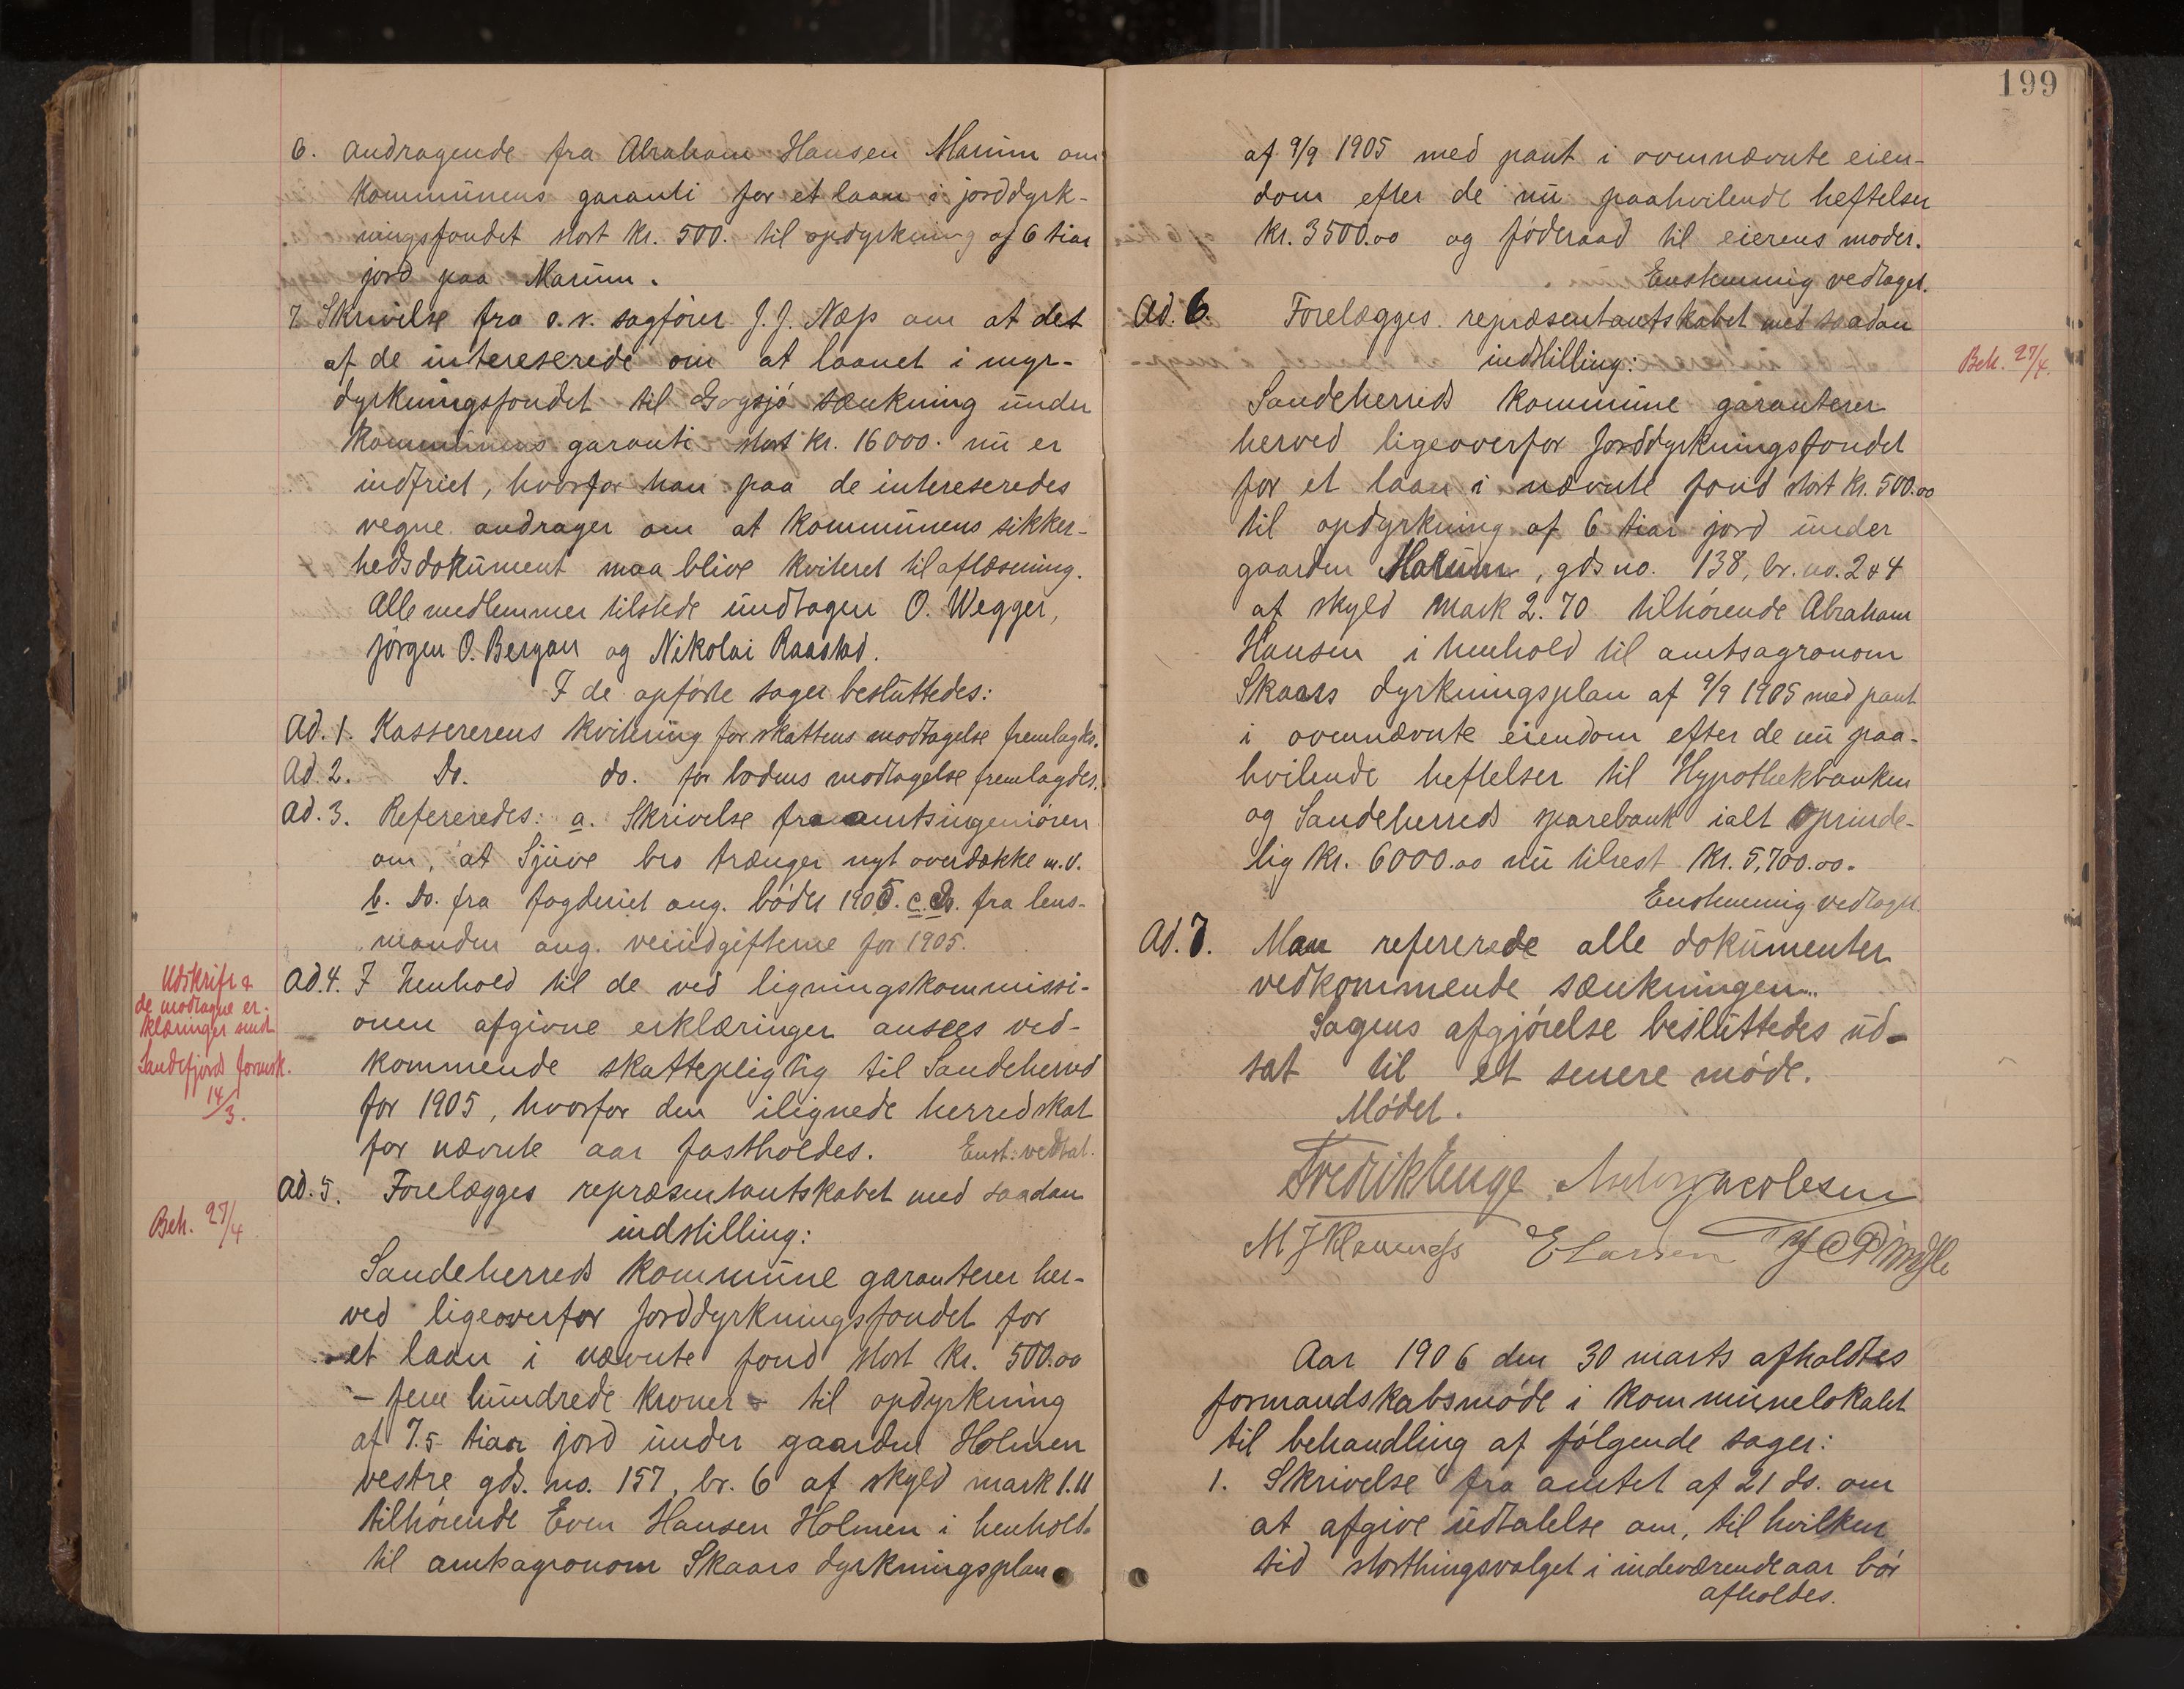 6. Andragende fra Abraham Hansen Marum om
kommunens garanti for et laan i jorddyrk-
ningsfondet stort kr. 500. til opdyrkning af 6 tiar
jord paa Marum.
7. Skrivelse fra o.r. sagfører J. J. Næss om at det
af de intereserede om at laanet i myr-
dyrkningsfondet til Gogsjø sænkning under
kommunens garanti stort kr. 16000. nu er
indfriet, hvorfor han paa de intereseredes
vegne andrager om at kommunens sikker-
hedsdokument maa blive kviteret til aflæsning.
Alle medlemmer tilstede undtagen O. Wegger,
Jørgen O. Bergan og Nikolai Raastad.
I de opførte sager besluttedes:
Ad. 1. Kassererens kvitering for skattens modtagelse fremlagdes.
Ad. 2. Do. do. for bodens modtagelse fremlagdes.
Ad. 3. Refereredes: a. Skrivelse fra amtsingeniøren
om, at Sjuve bro trænger nyt overdække m.v.
b. Do. fra fogderiet ang. bøder 1905. c. Do. fra lens-
manden ang. veiudgifterne for 1905.
Udskrift &
de modtagne er-
klæringer sendt
Sandefjords formsk.
14/3.
Ad. 4. I henhold til de ved ligningskommissi-
onen afgivne erklæringer ansees ved-
kommende skattepligtig til Sandeherred
for 1905, hvorfor den ilignede herredskat
for nævnte aar fastholdes. Enst. vedtat.
Beh. 27/4
Ad. 5. Forelægges repræsentantskabet med saadan
indstilling:
Sandeherreds kommune garanterer her-
ved ligeoverfor Jorddyrkningsfondet for
et laan i nævnte fond stort kr. 500.00
- fem hundrede kroner - til opdyrkning
af 7.5 tiar jord under gaarden Holmen
vestre gds. no. 157, br. 6 af skyld mark 1.11
tilhørende Even Hansen Holmen i henhold
til amtsagronom Skaars dyrkningsplan
199
af 9/9 1905 med pant i ovennævnte eien-
dom efter de nu paahvilende heftelser
kr. 3500.00 og føderaad til eierens moder.
Enstemmig vedtaget.
Ad. 6. Forelægges repræsentantskabet med saadan
indstilling:
Beh. 27/4.
Sandeherreds kommune garanterer
herved ligeoverfor Jorddyrkningsfondet
for et laan i nævnte fond stort kr. 500.00
til opdyrkning af 6 tiar jord under
gaarden Marum, gds no. 138, br. no. 2 & 4
af skyld mark 2.70 tilhørende Abraham
Hansen i henhold til amtsagronom
Skaars dyrkningsplan af 9/9 1905 med pant
i ovennævnte eiendom efter de nu paa-
hvilende heftelser til Hypothekbanken
og Sandeherreds sparebank ialt oprinde-
lig kr. 6000.00 nu tilrest kr. 5,700.00.
Enstemmig vedtaget.
Ad. 7. Man refererede alle dokumenter
vedkommende sænkningen.
Sagens afgjørelse besluttedes ud-
sat til et senere møde.
Mødet.
Fredrik Enge Jacobsen
M J Klaveness E Larsen
Aar 1906 den 30 marts afholdtes
formandskabsmøde i kommunelokalet
til behandling af følgende sager:
1. Skrivelse fra amtet af 21 ds. om
at afgive udtalelse om, til hvilken
tid storthingsvalget i indeværende aar bør
afholdes.